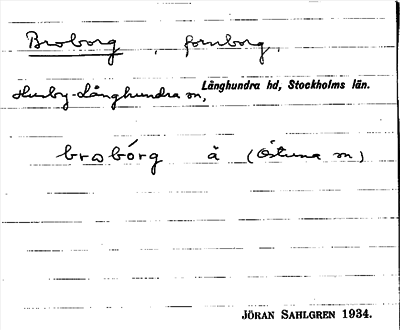 Broborg, fornborg,
Husby-Långhundra sn, Långhundra hd, Stockholms län.
brωbórg å (Östuna sn)
JÖRAN SAHLGREN 1934.